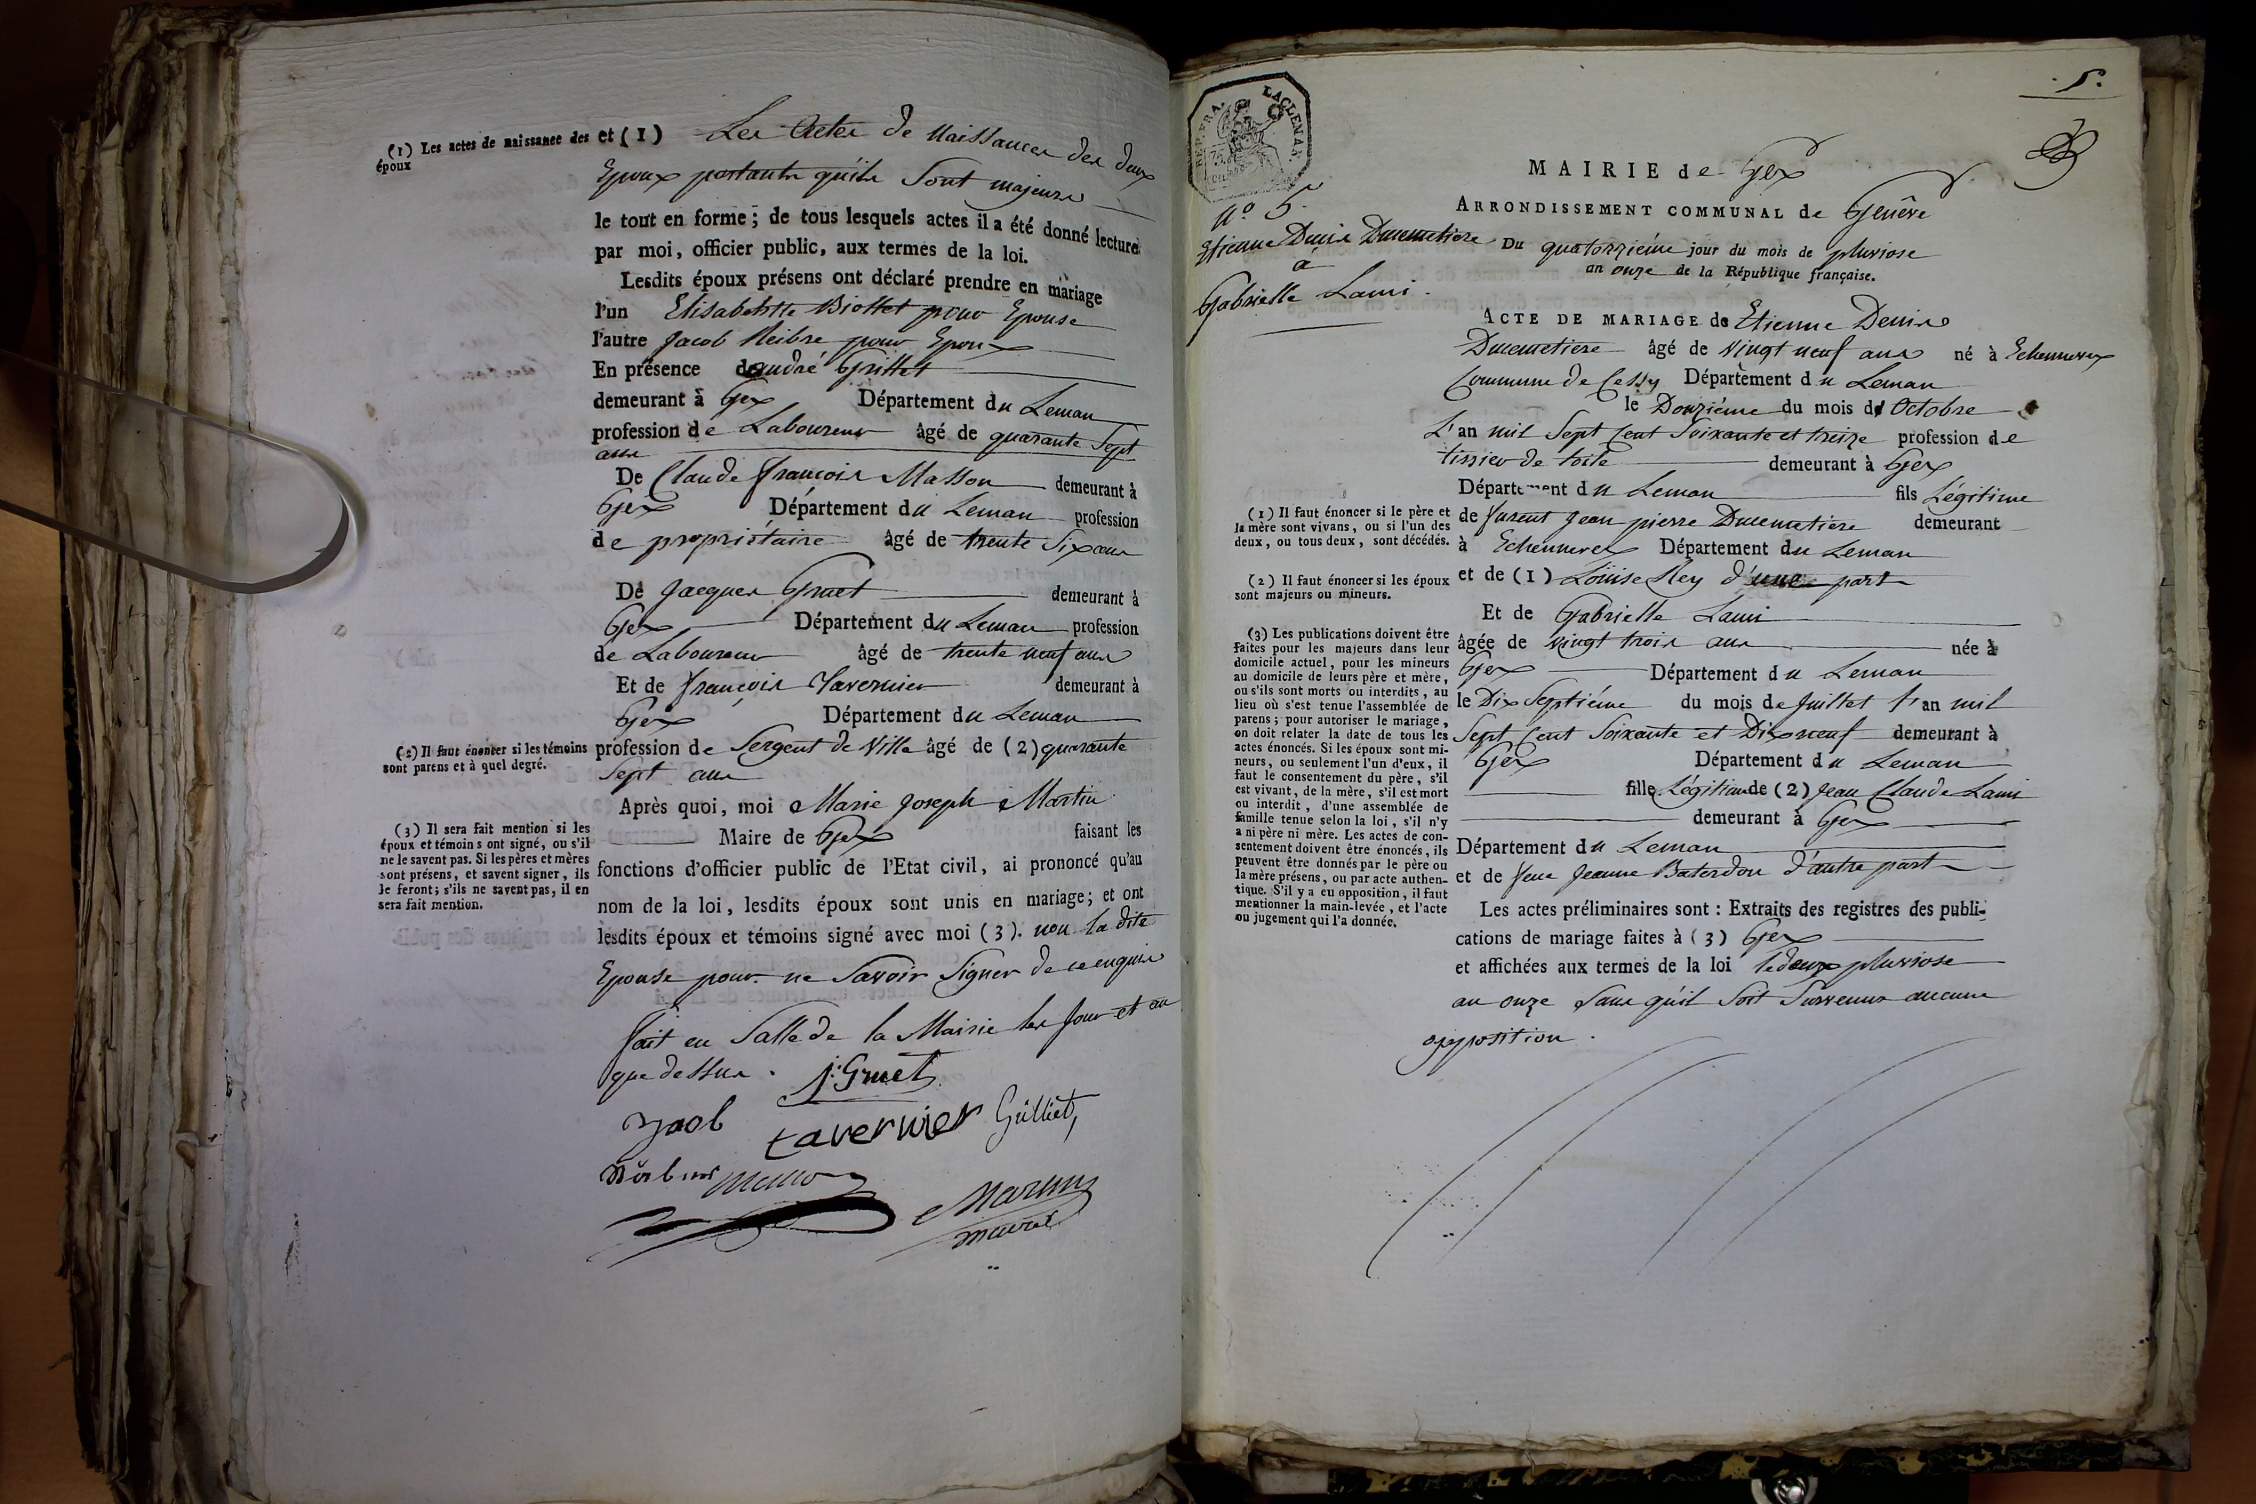 (1) Les actes de naissance des
époux
et (1) Les Actes de Naissances des deux
Epoux portants qu'ils Sont majeurs
le tout en forme; de tous lesquels actes il a été donné lecture
par moi, officier public, aux termes de la loi.
Lesdits époux présens ont déclaré prendre en mariage
l'un Elisabethe Biottet pour Epouse
l'autre Jacob Neibre pour Epoux
En présence de andré Grillet
demeurant à Gex Département du Leman
profession de Laboureur âgé de quarante Sept
ans
De Claude françois Masson demeurant à
Gex Département du Leman profession
de propriétaire âgé de trente Six ans
De Jacques Gruet demeurant à
Gex Département du Leman profession
de Laboureur âgé de trente neuf ans
Et de françois Tavernier demeurant à
Gex Département du Leman
(2) Il faut énoncer si les témoins
sont parens et à quel degré.
profession de Sergent de Ville âgé de (2) quarante
Sept ans
Après quoi, moi Marie Joseph Martin
Maire de Gex faisant les
fonctions d'officier public de l'Etat civil, ai prononcé qu'au
nom de la loi, lesdits époux sont unis en mariage; et ont
lesdits époux et témoins signé avec moi (3). non la dite
Epouse pour ne Savoir Signer de ce enquis
(3) Il sera fait mention si les
époux et témoins ont signé, ou s'il
ne le savent pas. Si les pères et mères
sont présens, et savent signer, ils
le feront; s'ils ne savent pas, il en
sera fait mention.
fait en Salle de la Mairie les Jour et an
que dessus. J. Gruet
Jacob tavernier Grilliet
Masson
Martin
maire
5.
REP. FRA.
75
MAIRIE de Gex
ARRONDISSEMENT COMMUNAL de Genêve
Du quatorzième jour du mois de pluviose
an onze de la République française.
N° 5.
Etienne Denis Ducemetiere
à
Gabrielle Lami.
ACTE DE MARIAGE de Etienne Denis
Ducemetiere âgé de Vingt neuf ans né à Echennevex
Commune de Cessy Département du Leman
le Douzième du mois de Octobre
L'an mil Sept Cent Soixante et treize profession de
tissier de toile demeurant à Gex
Département du Leman fils Légitime
de furent Jean pierre Ducemetiere demeurant
à Echennevex Département du Leman
et de (1) Loüise Rey d'une part
Et de Gabrielle Lami
âgée de Vingt trois ans née à
Gex Département du Leman
le Dix Septième du mois de Juillet l'an mil
Sept Cent Soixante et Dix neuf demeurant à
Gex Département du Leman
fille Légitime de (2) Jean Claude Lami
demeurant à Gex
Département du Leman
et de feue Jeanne Baterdon d'autre part
Les actes préliminaires sont : Extraits des registres des publi-
cations de mariage faites à (3) Gex
et affichées aux termes de la loi le deux pluviose
an onze Sans qu'il Soit Survenus aucune
opposition.
(1) Il faut énoncer si le père et
la mère sont vivans, ou si l'un des
deux, ou tous deux, sont décédés.
(2) Il faut énoncer si les époux
sont majeurs ou mineurs.
(3) Les publications doivent être
faites pour les majeurs dans leur
domicile actuel, pour les mineurs
au domicile de leurs père et mère,
ou s'ils sont morts ou interdits, au
lieu où s'est tenue l'assemblée de
parens; pour autoriser le mariage,
on doit relater la date de tous les
actes énoncés. Si les époux sont mi-
neurs, ou seulement l'un d'eux, il
faut le consentement du père, s'il
est vivant, de la mère, s'il est mort
ou interdit, d'une assemblée de
famille tenue selon la loi, s'il n'y
a ni père ni mère. Les actes de con-
sentement doivent être énoncés, ils
peuvent être donnés par le père ou
la mère présens, ou par acte authen-
tique. S'il y a eu opposition, il faut
mentionner la main-levée, et l'acte
ou jugement qui l'a donnée.